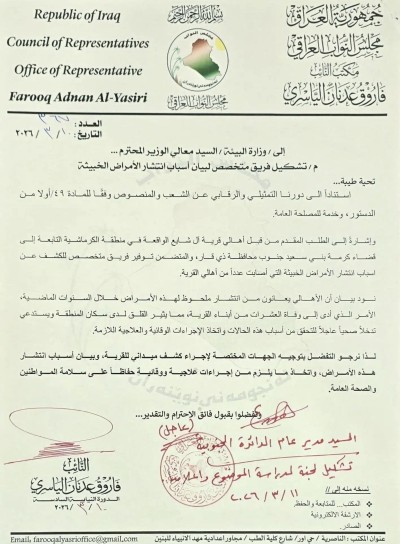 Republic of Iraq
Council of Representatives
Office of Representative
Farooq Adnan Al-Yasiri
بسم الله الرحمن الرحيم
مجلس النواب العراقي
جمهورية العراق
مجلس النواب العراقي
مكتب النائب
فاروق عدنان الياسري
العدد:
التاريخ: ١٠/ ٣ /٢٠٢٦
إلى / وزارة البيئة / السيد معالي الوزير المحترم ...
م / تشكيل فريق متخصص لبيان أسباب انتشار الأمراض الخبيثة
تحية طيبة...
استناداً الى دورنا التمثيلي والرقابي عن الشعب والمنصوص وفقاً للمادة ٤٩/أولا من
الدستور، وخدمة للمصلحة العامة.
وإشارة إلى الطلب المقدم من قبل أهالي قرية آل شايع الواقعة في منطقة الكرماشية التابعة إلى
قضاء كرمة بني سعيد جنوب محافظة ذي قار، والمتضمن توفير فريق متخصص للكشف عن
اسباب انتشار الأمراض الخبيثة التي أصابت عدداً من أهالي القرية.
نود بيان أن الأهالي يعانون من انتشار ملحوظ لهذه الأمراض خلال السنوات الماضية،
الأمر الذي أدى إلى وفاة العشرات من أبناء القرية، مما يثير القلق لدى سكان المنطقة ويستدعي
تدخلاً صحياً عاجلاً للتحقق من أسباب هذه الحالات واتخاذ الإجراءات الوقائية والعلاجية اللازمة.
لذا نرجو التفضل بتوجيه الجهات المختصة لإجراء كشف ميداني للقرية، وبيان أسباب انتشار
هذه الأمراض، واتخاذ ما يلزم من إجراءات علاجية ووقائية حفاظاً على سلامة المواطنين
والصحة العامة.
وتفضلوا بقبول فائق الاحترام والتقدير...
(عاجل)
السيد مدير عام الدائرة الجنوبية
تشكيل لجنة لدراسة الموضوع
٢٠٢٦/٣/١١
النائب
فاروق عدنان الياسري
الدورة النيابية السادسة
٢٠٢٦/٣/١٠
نسخه منه إلى //
المكتب... للمتابعة والحفظ.
الارشفة الالكترونية
الصادر.
Email: farooqalyasrioffice@gmail.com
عنوان المكتب : الناصرية / حي اور/ شارع كلية الطب / مجاور اعدادية مهد الانبياء للبنين